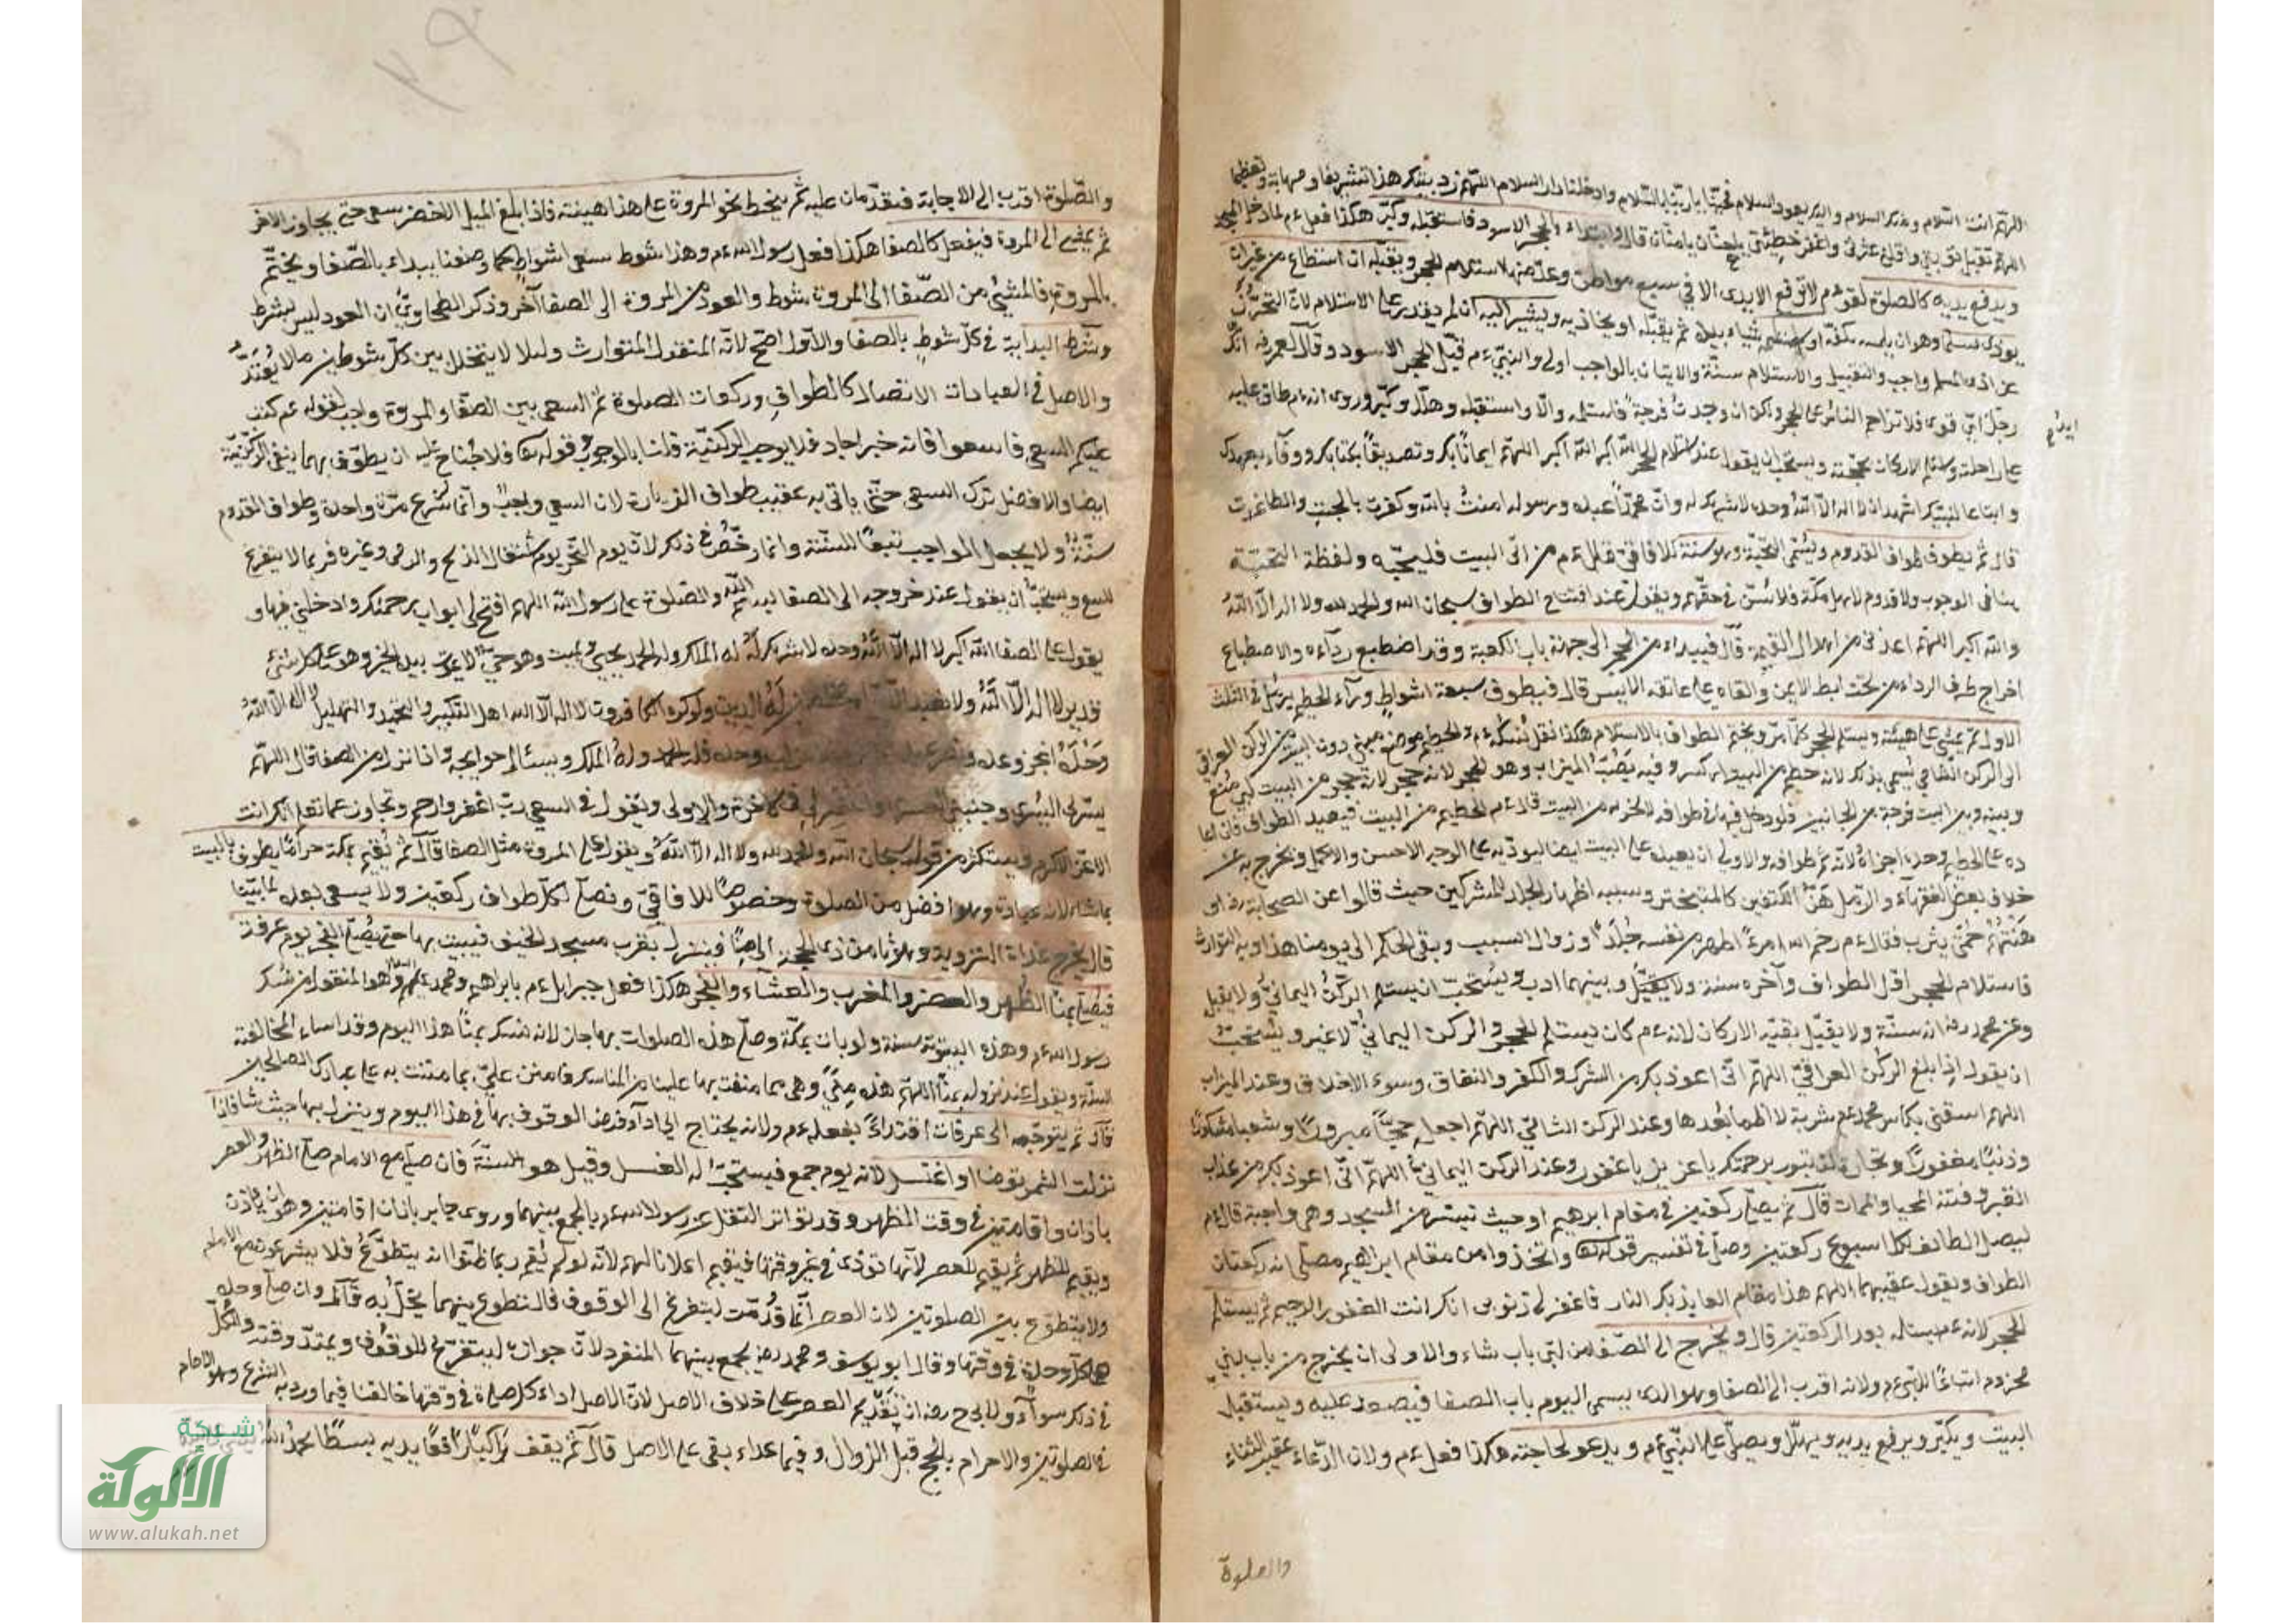 اللهم انت السلام ومنك السلام واليك يعود السلام فحينا يا ربنا بالسلام وادخلنا دار السلام اللهم زد بيتك هذا تشريفا ومهابة وتعظيما
اللهم تقبل توبتي واقلني عثرتي واغفر خطيئتي يا حنان يا منان قال وابتداء بالحجر الاسود فاستقبله وكبر هكذا فعل ءم لما دخل المسجد
ويرفع يديه كالصلوة لقوله ءم لا ترفع الايدى الا في سبع مواطن وعد منها استلام الحجر ويقبله ان استطاع من غير ان
يوذى مسلما وهو ان يلمسه بكفه او يلمسه شياء بيده ثم يقبله او يحاذيه ويشير اليه ان لم يقدر على الاستلام لان التحرز
عن اذى المسلم واجب والتقبيل والاستلام سنة والايتان بالواجب اولى والنبي ءم قبل الحجر الاسود وقال لعمر رضه انك
رجل ايد قوى فلا تزاحم الناس على الحجر ولكن ان وجدت فرجة فاستلمه والا واستقبله وهلل وكبر وروى انه ءم طاف عليه
على راحلة واستلم الاركان بمحجنه ويستحب ان يقول عند استلام الحجر الله اكبر الله اكبر اللهم ايمانا بك وتصديقا بكتابك ووفاء بعهدك
واتباعا لنبيك اشهد ان لا اله الا الله وحده لا شريك له وان محمدا عبده ورسوله امنت بالله وكفرت بالجبت والطاغوت
قال ثم يطوف طواف القدوم ويسمى التحية وهو سنة للافاقي لقوله ءم من اتى البيت فليحيه ولفظة التحية
ينافى الوجوب ولا قدوم لاهل مكة فلا يسن في حقهم ويقول عند افتتاح الطواف سبحان الله والحمد لله ولا اله الا الله
والله اكبر اللهم اعذني من اهوال القيمة قال فيبداء من الحجر الى جهة باب الكعبة وقد اضطبع رداءه والاضطباع
اخراج طرف الرداء من تحت ابطه الايمن والقاه على عاتقه الايسر قال فيطوف سبعة اشواط وراء الحطيم يرمل في الثلث
الاول ثم يمشي على هيئته ويستلم الحجر كلما مر ويختم الطواف بالاستلام هكذا نقل نسكه ءم والحطيم موضع مبنى دون البيت من الركن العراقي
الى الركن الشامي يسمى بذلك لانه حطم من البيت اى كسر وفيه يصب الميزاب وهو الحجر لانه حجر من البيت اى منع
وبينه وبين البيت فرجة من الجانبين فلو دخل فيها في طوافه لم يجزه لانه من البيت قال ءم الحطيم من البيت فيعيد الطواف فان اعا
ده على الحطيم وحده اجزاه لانه تم طوافه والاولى ان يعيده على البيت ايضا ليوديه على الوجه الاحسن والاكمل ويخرج به عن
خلاف بعض الفقهاء والرمل هز الكتفين كالمتبختر وسببه اظهار الجلد للمشركين حيث قالوا عن الصحابة رضه
هنتهم حمى يثرب فقال ءم رحم الله امرءا اظهر من نفسه جلدا وزوال السبب وبقى الحكم الى يومنا هذا وبه التوارث
فاستلام الحجر اول الطواف وآخره سنة ولا يقبل وبينهما ادب ويستحب ان يستلم الركن اليماني ولا يقبل
وعن محمد رضه انه سنة ولا يقبل بقية الاركان لانه ءم كان يستلم الحجر والركن اليماني لا غير ويستحب
ان يقول اذا بلغ الركن العراقي اللهم اني اعوذ بك من الشرك والكفر والنفاق وسوء الاخلاق وعند الميزاب
اللهم اسقني بكاس محمد ءم شربة لا اظما بعدها وعند الركن الشامي اللهم اجعله حجا مبرورا وسعيا مشكورا
وذنبا مغفورا وتجارة لن تبور برحمتك يا عزيز يا غفور وعند الركن اليماني اللهم اني اعوذ بك من عذاب
القبر وفتنة المحيا والممات قال ثم يصلى ركعتين في مقام ابرهيم او حيث تيسر من المسجد وهي واجبة قال ءم
ليصل الطائف لكل اسبوع ركعتين وصلى في تفسير قوله تعا واتخذوا من مقام ابراهيم مصلى انه ركعتان
الطواف ويقول عقيبهما اللهم هذا مقام العايذ بك النار فاغفر لي ذنوبي انك انت الغفور الرحيم ثم يستلم
الحجر لانه ءم استلمه بعد الركعتين قال ويخرج الى الصفا من اى باب شاء والاولى ان يخرج من باب بني
مخزوم اتباعا للنبي ءم ولانه اقرب الى الصفا وهو الذى يسمى اليوم باب الصفا فيصعد عليه ويستقبل
البيت ويكبر ويرفع يديه ويهلل ويصلى على النبي ءم ويدعو لحاجته هكذا فعل ءم ولان الدعاء عقيب الثناء
والصلوة
والصلوة اقرب الى الاجابة فيقدمان عليه ثم ينحط نحو المروة على هذا هينته فاذا بلغ الميل الاخضر يسعى حتى يجاوز الاخر
ثم يمشى الى المروة فيفعل كالصفا هكذا فعل رسول الله ءم وهذا شوط يسعى اشواط كما وصفنا يبداء بالصفا ويختم
بالمروة فالمشي من الصفا الى المروة شوط والعود من المروة الى الصفا آخر وذكر الطحاوي ان العود ليس بشرط
وشرط البداية في كل شوط بالصفا والاول اصح لانه المنقول المتوارث وليلا لا يتخلل بين كل شوطين ما لا يعتد
والاصل في العبادات الاتصال كالطواف وركعات الصلوة ثم السعي بين الصفا والمروة واجب لقوله ءم كتب
عليكم السعي فاسعوا فانه خبر احاد فلا يوجب الركنية قلنا بالوجوب وقوله تعا فلا جناح عليه ان يطوف بهما ينفى الركنية
ايضا والافضل ترك السعي حتى ياتى به عقيب طواف الزيارة لان السعي واجب وانما شرع مرة واحدة وطواف القدوم
سنة ولا يجعل الواجب تبعا للسنة وانما رخص في ذلك لان يوم النحر يوم شغل الذبح والرمي وغيره فربما لا يتفرغ
للسعي ويستحب ان يقول عند خروجه الى الصفا بسم الله والصلوة على رسول الله اللهم افتح لى ابواب رحمتك وادخلني فيها و
يقول على الصفا الله اكبر لا اله الا الله وحده لا شريك له له الملك وله الحمد يحيي ويميت وهو حي لا يموت بيده الخير وهو على كل شئ
قدير لا اله الا الله ولا نعبد الا اياه مخلصين له الدين ولو كره الكافرون لا اله الا الله اهل التكبير والتحميد والتهليل لا اله الا الله
وحده انجز وعده ونصر عبده وحده فله الحمد وله الملك ويسئال حوايجه واذا نزل من الصفا قال اللهم
يسر لى اليسرى وجنبني العسرى واغفر لى في الاخرة والاولى ويقول في السعي رب اغفر وارحم وتجاوز عما تعلم انك انت
الاعز الاكرم ويستكثر من قول سبحان الله والحمد لله ولا اله الا الله ويقول على المروة مثل الصفا قال ثم يقيم بمكة حراما يطوف بالبيت
ما شاء لانه عبادة وهو افضل من الصلوة وخصوصا للافاقي ويصلى لكل طواف ركعتين ولا يسعى بعده لما بينا
قال يخرج غداة التروية وهو ثامن ذى الحجة الى منا فينزل بقرب مسجد الخيف فيبيت بها حتى يصلى الفجر يوم عرفة
فيصلى بمنا الظهر والعصر والمغرب والعشاء والفجر هكذا فعل جبرايل ءم بابراهيم ومحمد عليهم السلام وهو المنقول من نسك
رسول الله ءم وهذه البيتوتة سنة ولو بات بمكة وصلى هذه الصلوات بها جاز لانه لا نسك بمنا هذا اليوم وقد اساء لمخالفته
السنة ويقول عند نزوله بمنا اللهم هذه منى وهي مما مننت بها علينا من المناسك فامنن على بما مننت به على عبادك الصالحين
قال ثم يتوجه الى عرفات اقتداء بفعله ءم ولانه يحتاج الى اداء فرض الوقوف بها في هذا اليوم وينزل بها حيث شا فاذا
نزلت الشمس توضا او اغتسل لانه يوم جمع فيستحب له الغسل وقيل هو السنة فان صلى مع الامام صلى الظهر والعصر
باذان واقامتين في وقت الظهر وقد تواتر النقل عن رسول الله ءم بالجمع بينهما وروى جابر باذان واقامتين وهو ان ياذن
ويقيم للظهر ثم يقيم للعصر لانها تودى في غير وقتها فيقيم اعلانا لهم لانه لو لم يقم ربما ظنوا انه يتطوع فلا يشرعون مع الامام
ولا يتطوع بين الصلوتين لان العصر انما قدمت ليتفرغ الى الوقوف فالتطوع بينهما يخل به قال وان صلى وحده
صلى كل واحدة في وقتها وقال ابو يوسف ومحمد رضه يجمع بينهما المنفرد لان جوازه ليتفرغ للوقوف ويمتد وقته والكل
في ذلك سواء ولابى ح رضه ان تقديم العصر على خلاف الاصل لان الاصل اداء كل صلوة في وقتها خالفنا فيما ورد به الشرع وهو الامام
في الصلوتين والاحرام بالحج قبل الزوال وفيما عداه بقى على الاصل قال ثم يقف راكبا رافعا يديه بسطا يحمد الله
شبكة
الألوكة
www.alukah.net